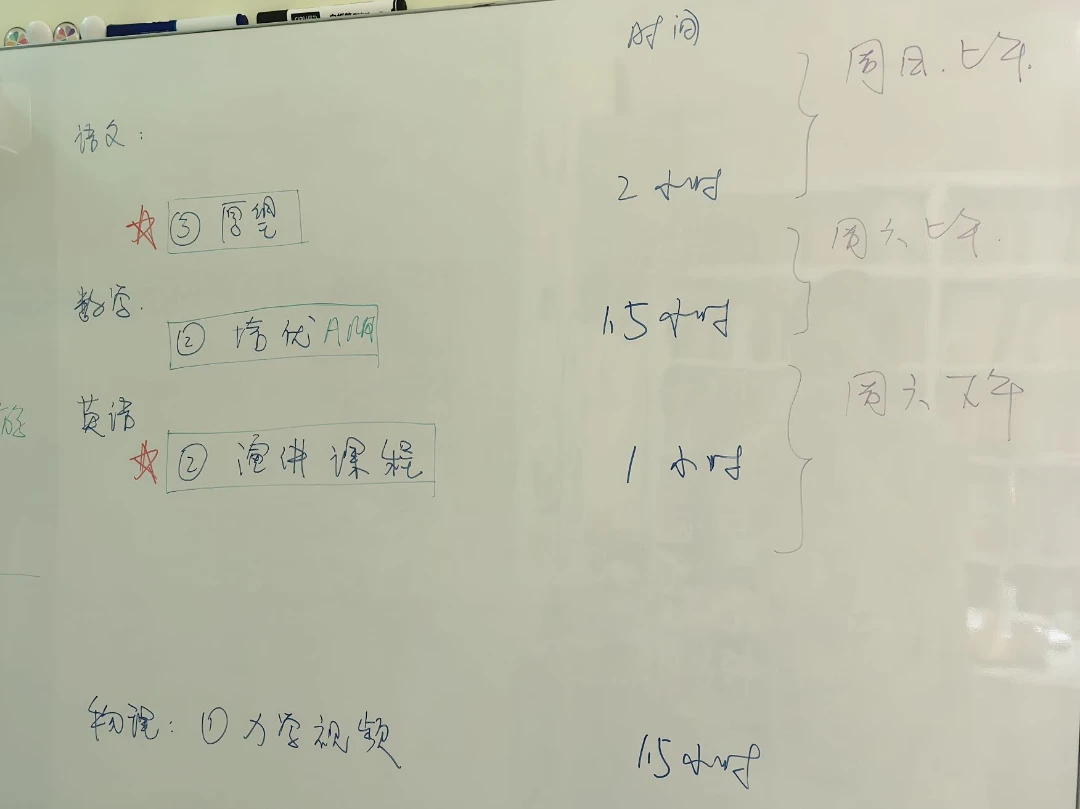 时间
周日.上午.
语文:
2小时
③ 厚望
周六上午.
数学.
② 培优
1.5小时
周六下午
英语
② 演讲课程
1小时
物理: ① 力学视频
1.5小时